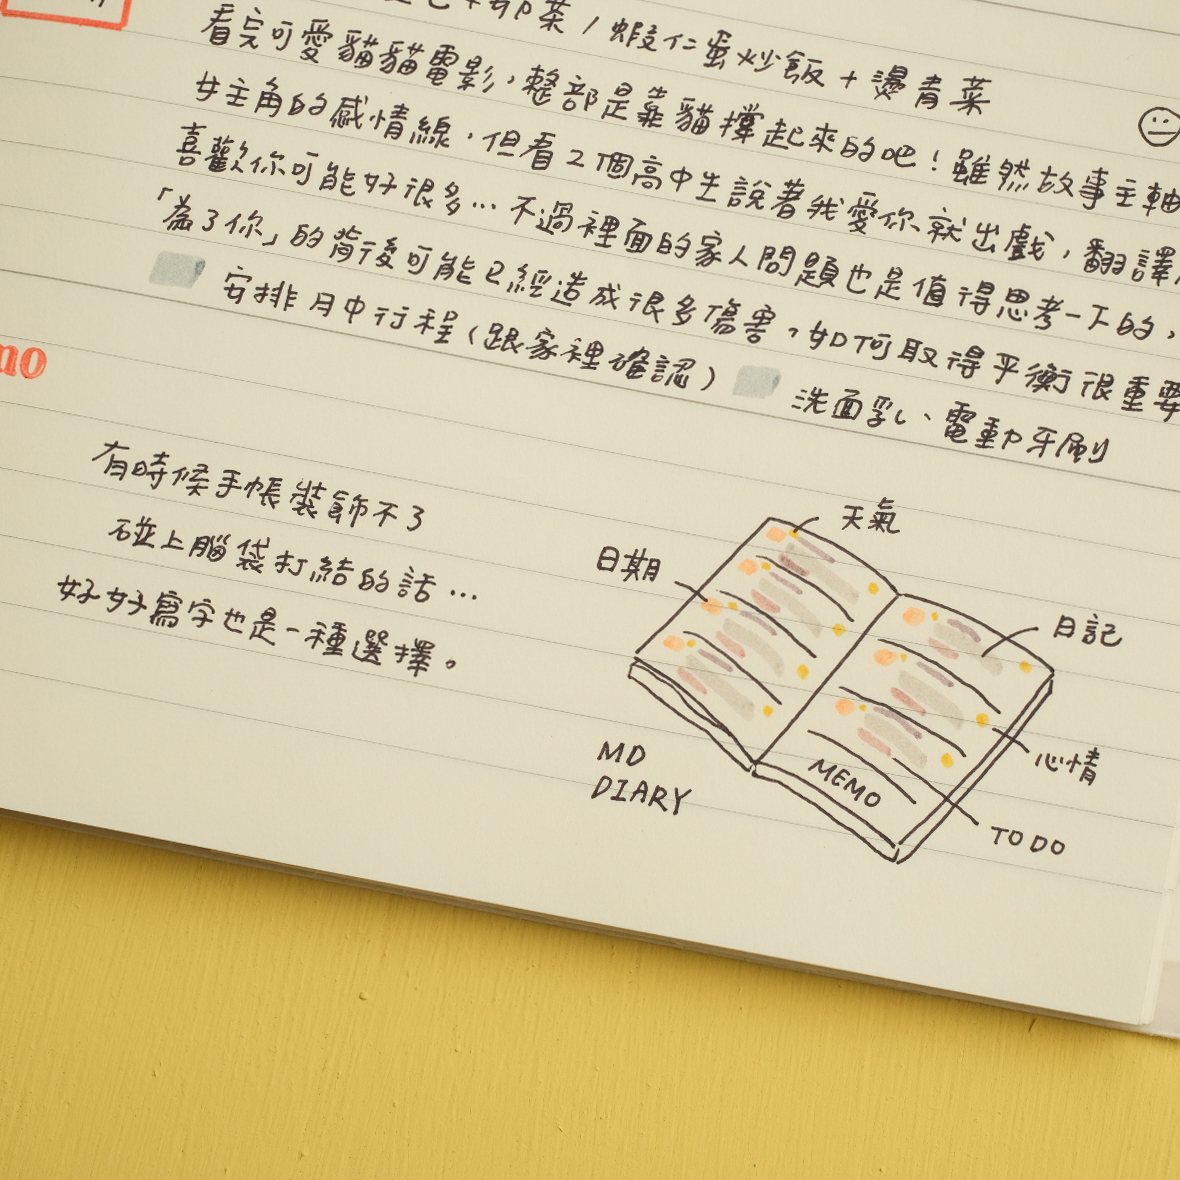 菜 / 蝦仁蛋炒飯 + 燙青菜
看完可愛貓貓電影,整部是靠貓撐起來的吧!雖然故事主軸
女主角的感情線,但看2個高中生說著我愛你就出戲,翻譯
喜歡你可能好很多…不過裡面的家人問題也是值得思考一下的,
「為了你」的背後可能已經造成很多傷害,如何取得平衡很重要
安排月中行程(跟家裡確認) 洗面乳、電動牙刷
mo
有時候手帳裝飾不了
碰上腦袋打結的話…
好好寫字也是一種選擇。
天氣
日期
日記
心情
TO DO
MEMO
MD
DIARY